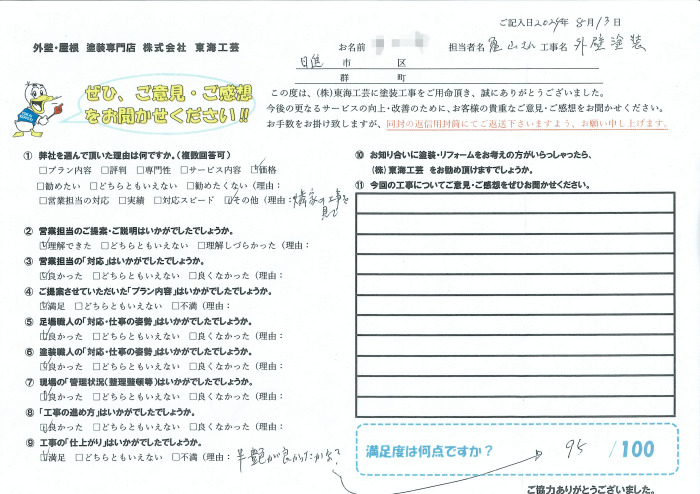 ご記入日2024年 8月13日
外壁・屋根 塗装専門店 株式会社 東海工芸
お名前 担当者名 亀山さん 工事名 外壁塗装
日進 市 区
郡 町
ぜひ、ご意見・ご感想
をお聞かせください!!
この度は、(株)東海工芸に塗装工事をご用命頂き、誠にありがとうございました。
今後の更なるサービスの向上・改善のために、お客様の貴重なご意見・ご感想をお聞かせください。
お手数をお掛け致しますが、同封の返信用封筒にてご返送下さいますよう、お願い申し上げます。
① 弊社を選んで頂いた理由は何ですか。(複数回答可)
□プラン内容 □評判 □専門性 □サービス内容 ☑価格
□勧めたい □どちらともいえない □勧めたくない(理由:
□営業担当の対応 □実績 □対応スピード ☑その他(理由:隣家の工事を
見て
② 営業担当のご提案・ご説明はいかがでしたでしょうか。
☑理解できた □どちらともいえない □理解しづらかった(理由:
③ 営業担当の「対応」はいかがでしたでしょうか。
☑良かった □どちらともいえない □良くなかった(理由:
④ ご提案させていただいた「プラン内容」はいかがでしたでしょうか。
☑満足 □どちらともいえない □不満(理由:
⑤ 足場職人の「対応・仕事の姿勢」はいかがでしたでしょうか。
☑良かった □どちらともいえない □良くなかった(理由:
⑥ 塗装職人の「対応・仕事の姿勢」はいかがでしたでしょうか。
☑良かった □どちらともいえない □良くなかった(理由:
⑦ 現場の「管理状況(整理整頓等)はいかがでしたでしょうか。
☑良かった □どちらともいえない □良くなかった(理由:
⑧ 「工事の進め方」はいかがでしたでしょうか。
☑良かった □どちらともいえない □良くなかった(理由:
⑨ 工事の「仕上がり」はいかがでしたでしょうか。
☑満足 □どちらともいえない □不満(理由:半艶が良かったかな?
⑩ お知り合いに塗装・リフォームをお考えの方がいらっしゃったら、
(株)東海工芸 をお勧め頂けますでしょうか。
⑪ 今回の工事についてご意見・ご感想をぜひお聞かせください。
満足度は何点ですか? 95 /100
ご協力ありがとうございました。